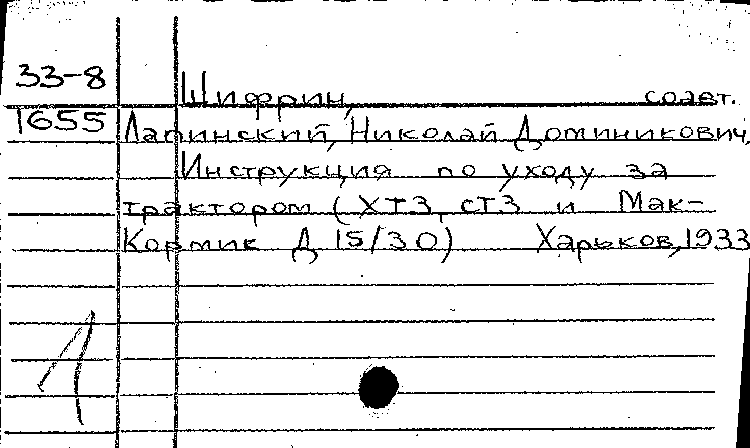 33-8 Шифрин, соавт.
1655 Лапинский, Николай Доминикович,
Инструкция по уходу за
трактором (ХТЗ, СТЗ и Мак-
Кормик Д 15/30) Харьков, 1933